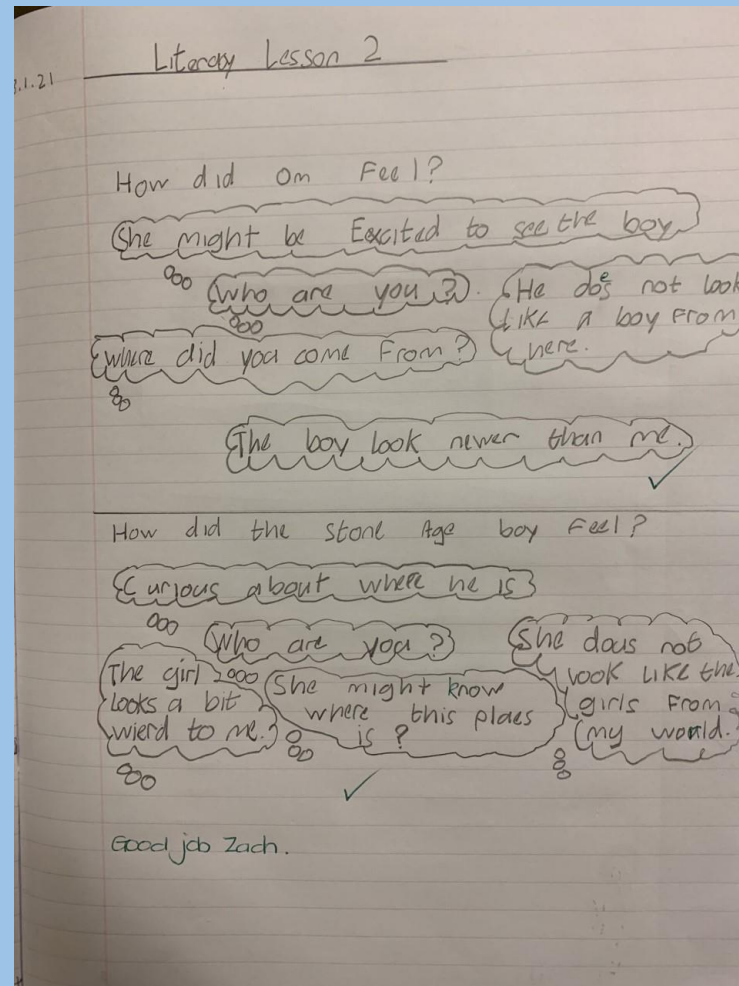 Literacy Lesson 2
3.1.21
How did Om Feel?
She might be Excited to see the boy
Who are you?
He does not look
Like a boy From
here.
where did you come From?
The boy look newer than me.
How did the stone Age boy Feel?
Curious about where he is
Who are you?
She does not
look Like the
girls From
my world.
The girl
looks a bit
wierd to me.
She might know
where this plaes
is?
Good job Zach.